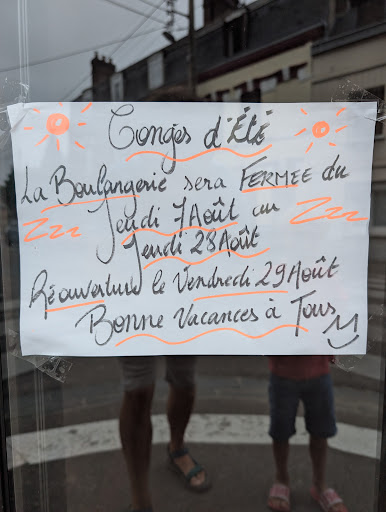 Congés d'Été
La Boulangerie sera FERMEE du
Jeudi 7 Août au
Jeudi 28 Août
Réouverture le Vendredi 29 Août
Bonne Vacances à Tous